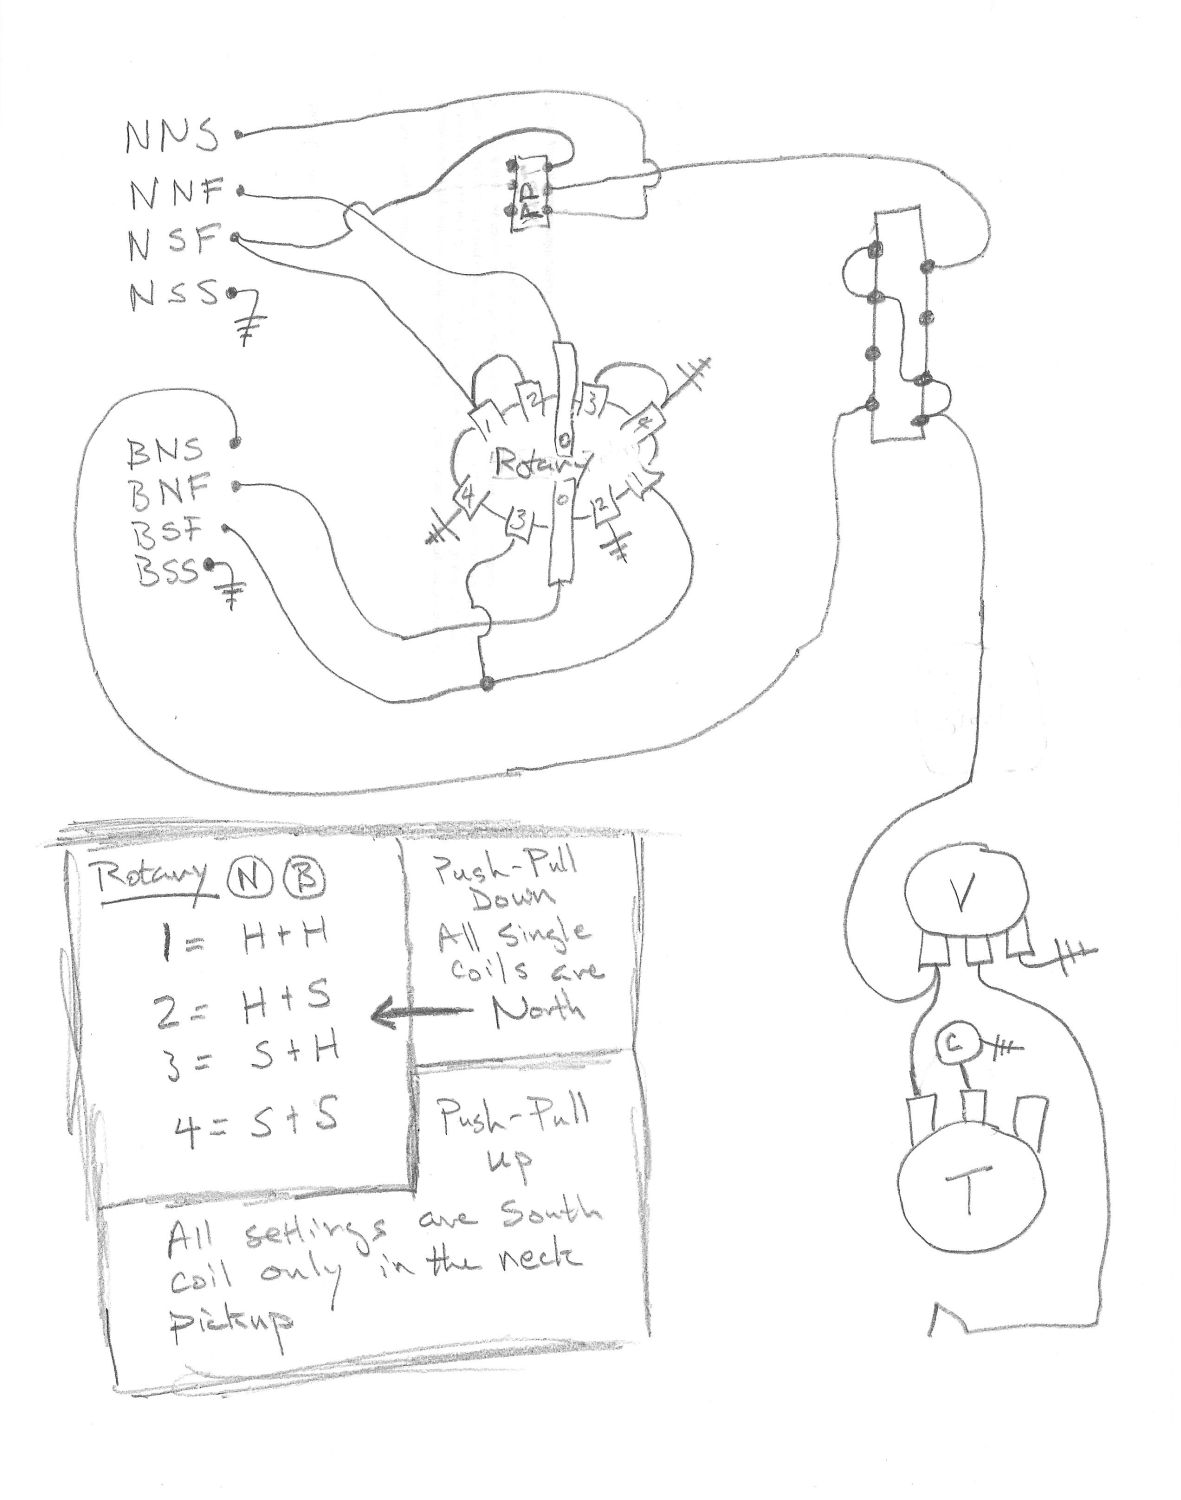 NNS
NNF
NSF
NSS
PP
1
2
O
3
4
Rotary
4
3
O
2
1
BNS
BNF
BSF
BSS
V
C
T
Rotary N B
1 = H+H
2 = H+S
3 = S+H
4 = S+S
Push-Pull
Down
All single
coils are
North
Push-Pull
up
All settings are South
coil only in the neck
pickup